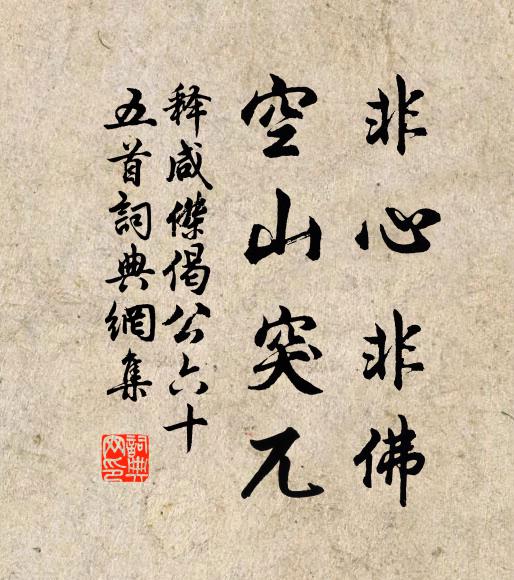 非心非佛
空山突兀
释咸傑偈公六十
五首詞典網集
詞典網印